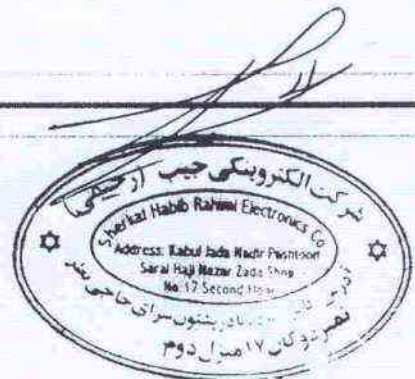 شرکت الکترونیکی حبیب (رحیمی)
Sherkat Habib Rahimi Electronics Co
Address: Kabul Jada Nadir Pashtoon
Sarai Haji Nazar Zada Shop
No 17 Second Floor
نادر پشتون سرای حاجی نظر
نمبر دوکان ۱۷ منزل دوم